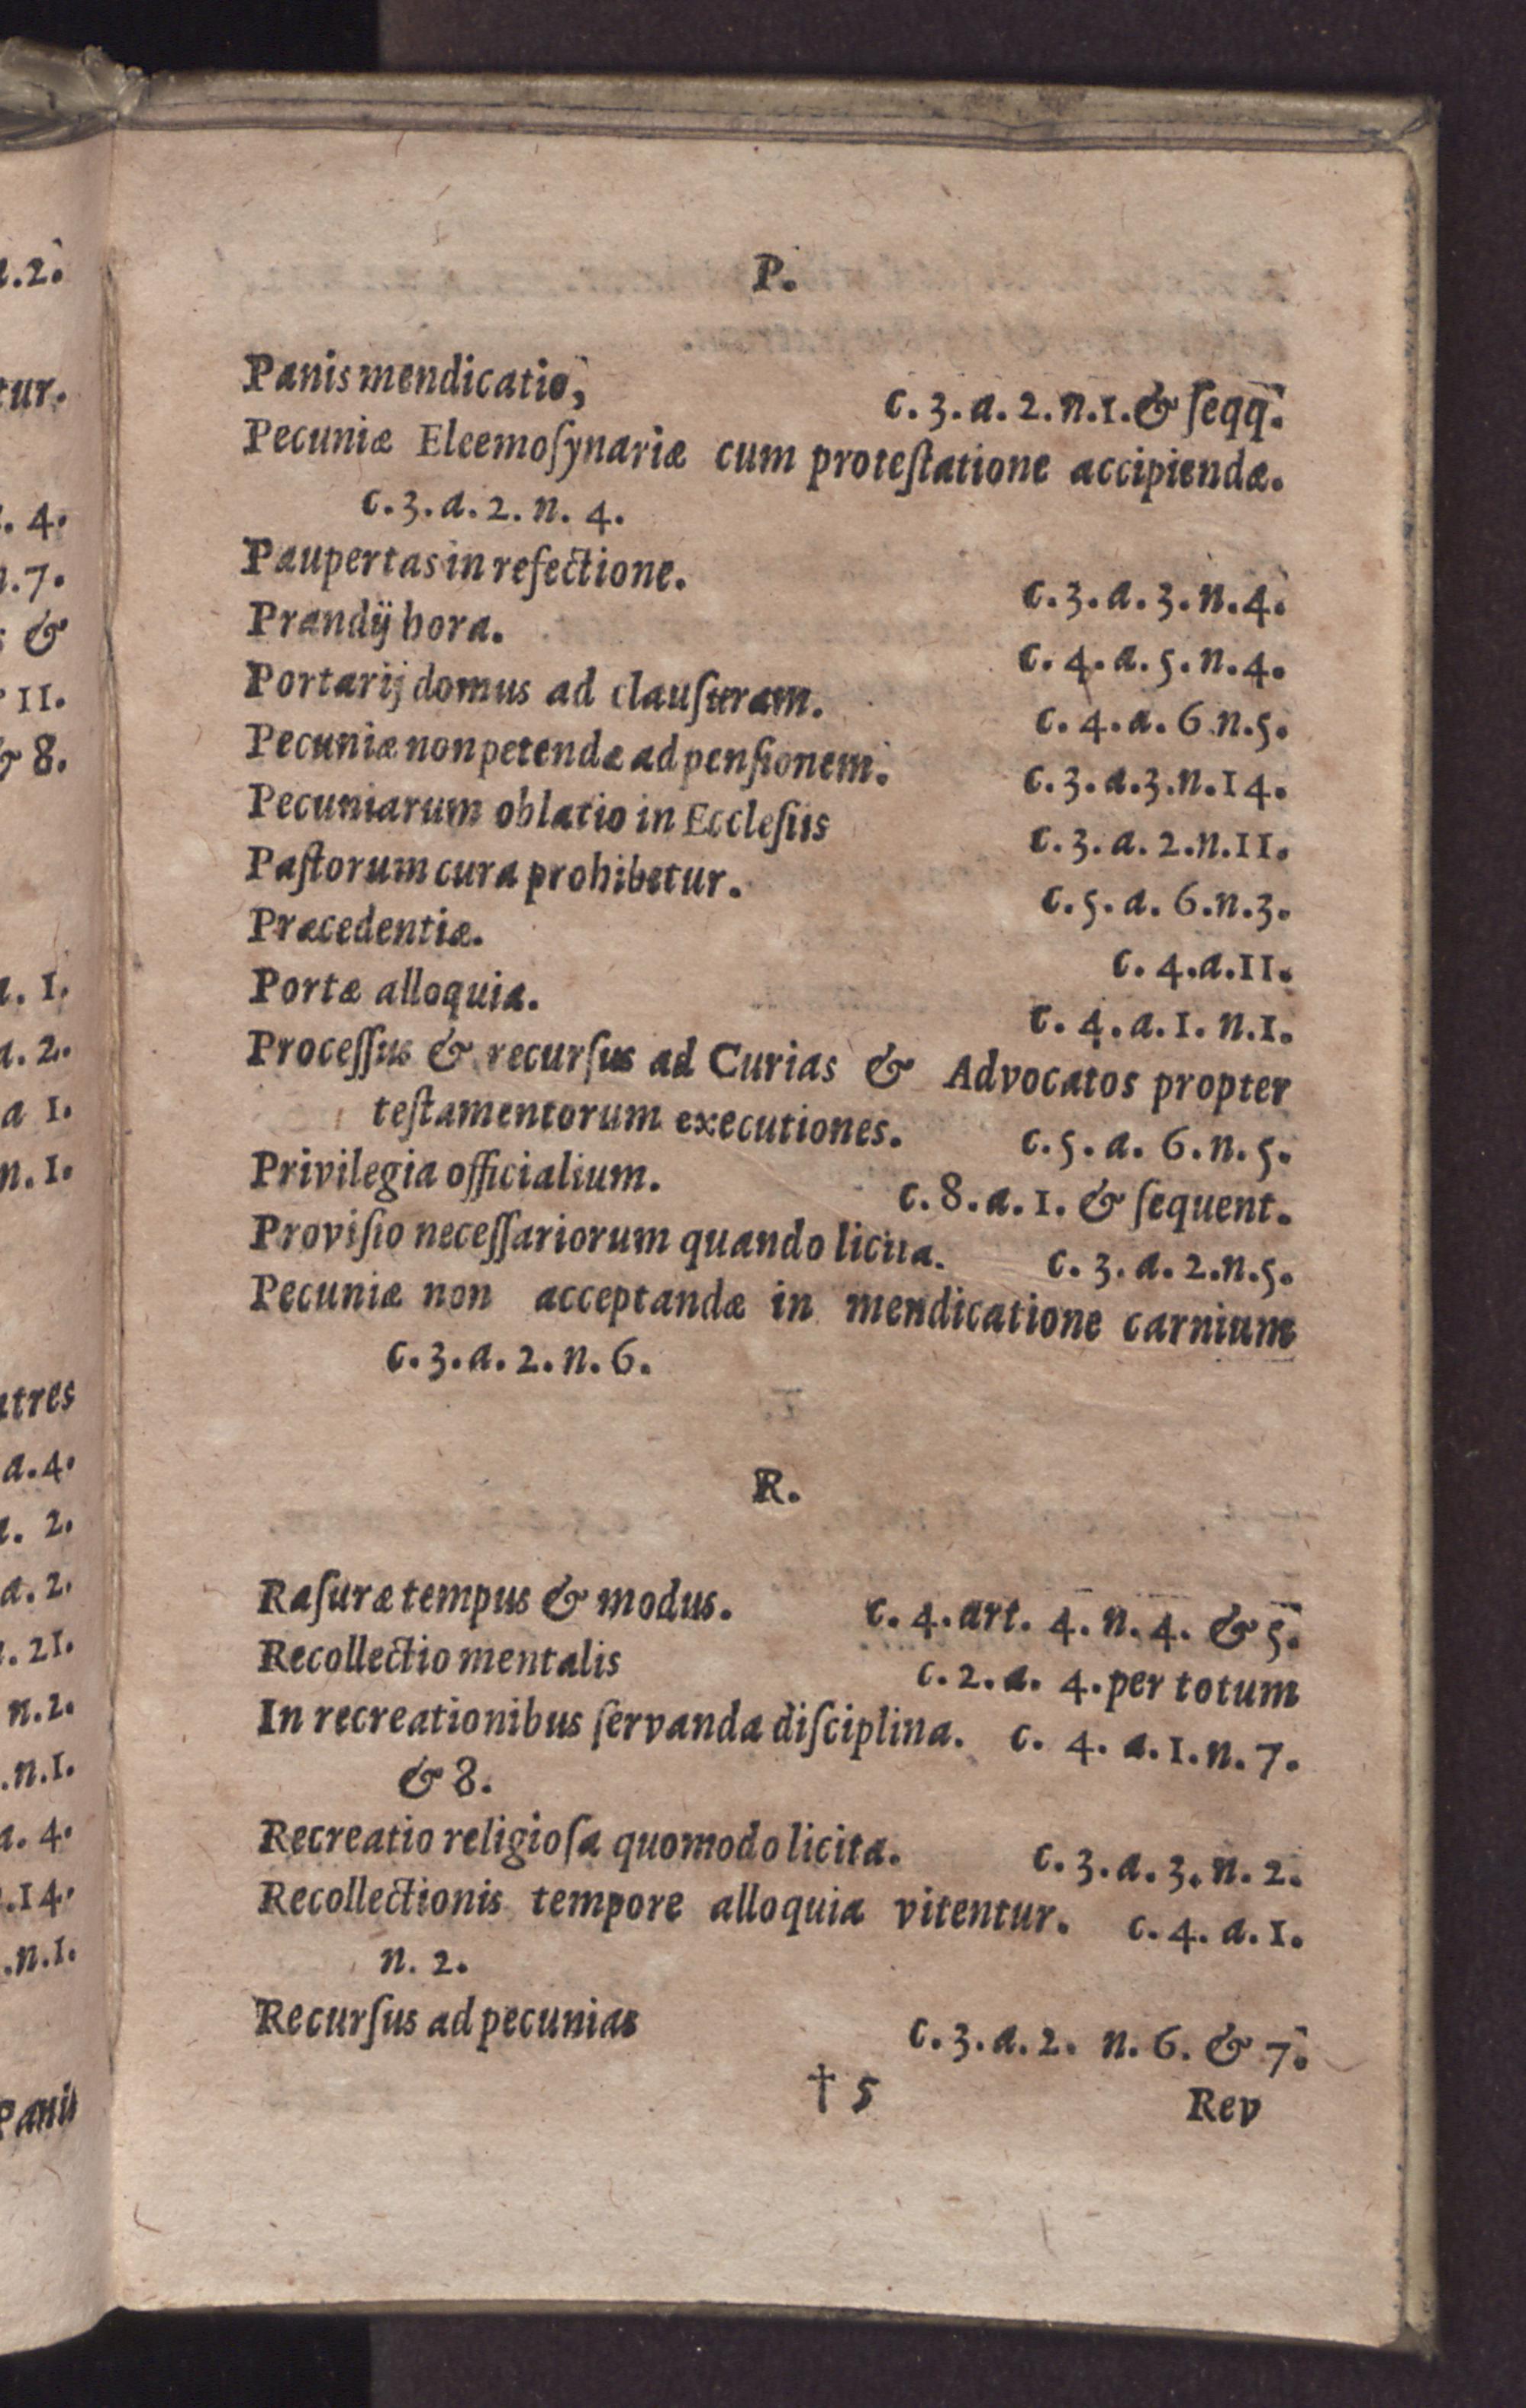 P.
Panis mendicatio, c. 3. a. 2. n. 1. & ſeqq.
Pecuniæ Eleemoſynariæ cum proteſtatione accipiendæ.
c. 3. a. 2. n. 4.
Paupertas in refectione. c. 3. a. 3. n. 4.
Prandij hora. c. 4. a. 5. n. 4.
Portarij domus ad clauſuram. c. 4. a. 6. n. 5.
Pecuniæ non petendæ ad penſionem. c. 3. a. 3. n. 14.
Pecuniarum oblatio in Eccleſiis c. 3. a. 2. n. 11.
Paſtorum cura prohibetur. c. 5. a. 6. n. 3.
Præcedentiæ. c. 4. a. 11.
Portæ alloquia. c. 4. a. 1. n. 1.
Proceſſus & recurſus ad Curias & Advocatos propter
teſtamentorum executiones. c. 5. a. 6. n. 5.
Privilegia officialium. c. 8. a. 1. & ſequent.
Proviſio neceſſariorum quando licita. c. 3. a. 2. n. 5.
Pecuniæ non acceptandæ in mendicatione carnium
c. 3. a. 2. n. 6.
R.
Raſuræ tempus & modus. c. 4. art. 4. n. 4. & 5.
Recollectio mentalis c. 2. a. 4. per totum
In recreationibus ſervanda diſciplina. c. 4. a. 1. n. 7.
& 8.
Recreatio religioſa quomodo licita. c. 3. a. 3. n. 2.
Recollectionis tempore alloquia vitentur. c. 4. a. 1.
n. 2.
Recurſus ad pecunias c. 3. a. 2. n. 6. & 7.
† 5 Rev